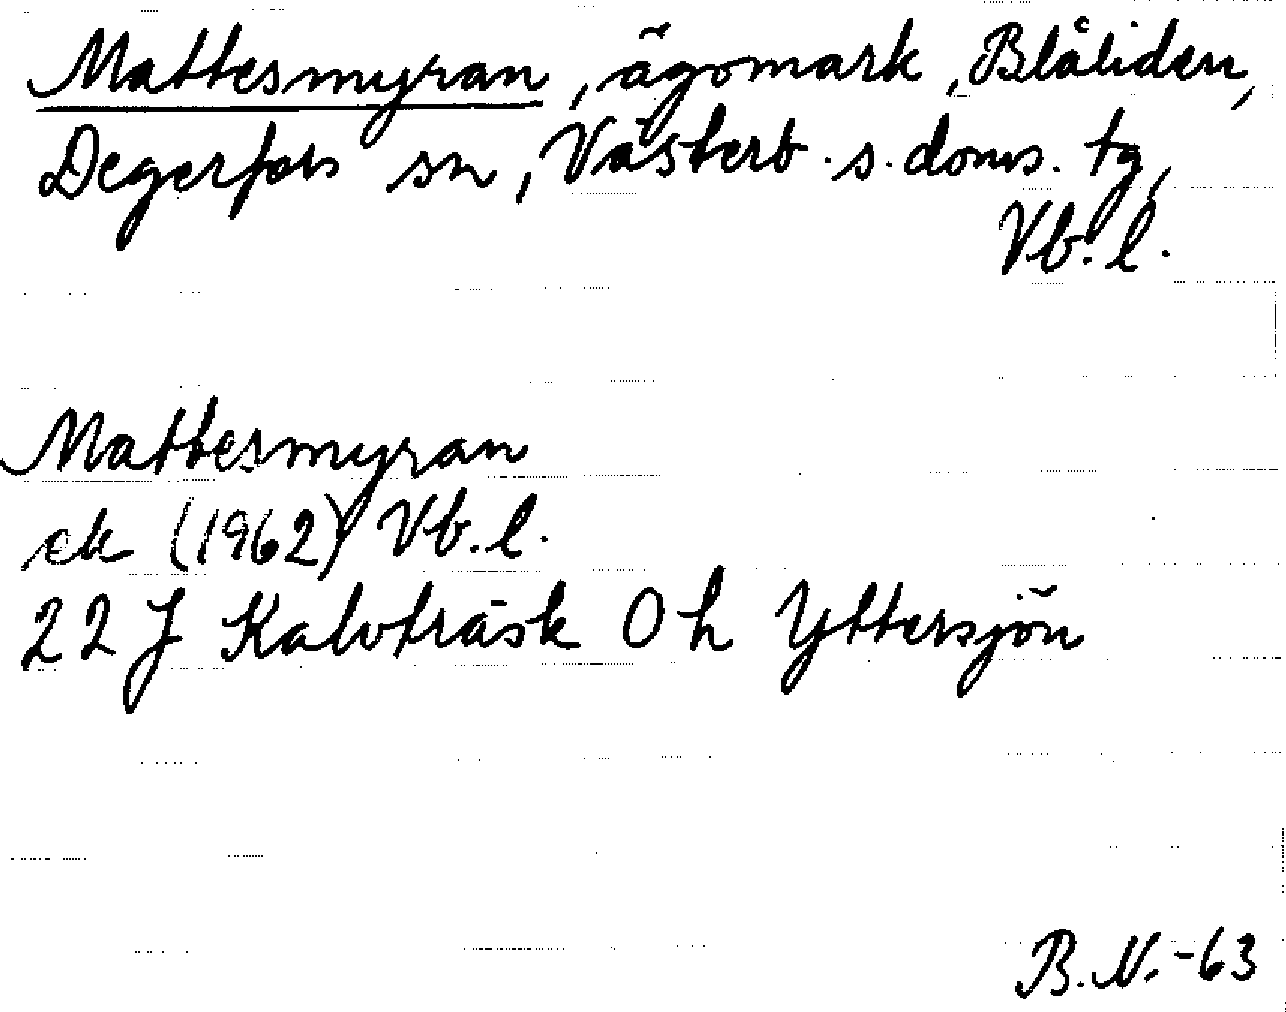 Mattesmyran, ägomark, Blåliden,
Degerfors sn, Västerb. s. doms. tg,
Vb. l.
Mattesmyran
ek (1962) Vb. l.
22 J Kalvträsk 0 h Yttersjön
B.N. -63